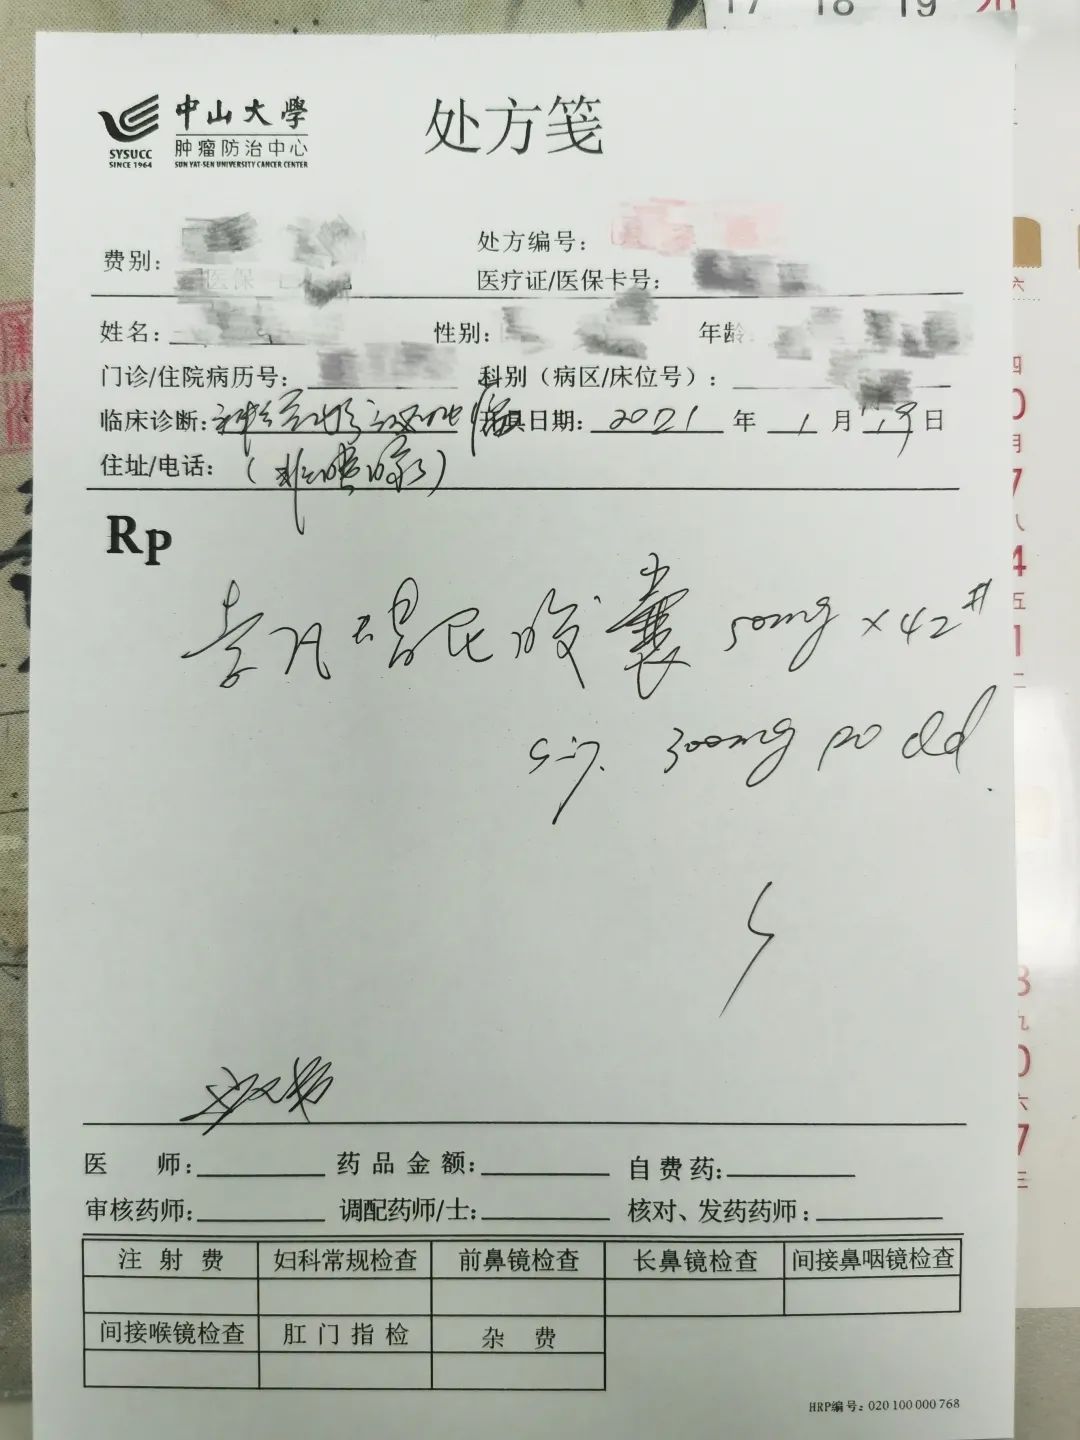 17 18 19 20
中山大學
肿瘤防治中心
SYSUCC
SINCE 1964
SUN YAT-SEN UNIVERSITY CANCER CENTER
处方笺
费别:
处方编号:
医疗证/医保卡号:
姓名:
性别:
年龄:
门诊/住院病历号:
科别（病区/床位号）:
临床诊断:神经内分泌肿瘤
开具日期: 2021 年 1 月 19 日
住址/电话:
(非胰腺)
Rp
索凡替尼胶囊 50mg × 42#
sig. 300mg po qd
医 师:
药品金额:
自费药:
审核药师:
调配药师/士:
核对、发药药师:
注射费 妇科常规检查 前鼻镜检查 长鼻镜检查 间接鼻咽镜检查
间接喉镜检查 肛门指检 杂费
HRP编号: 020 100 000 768